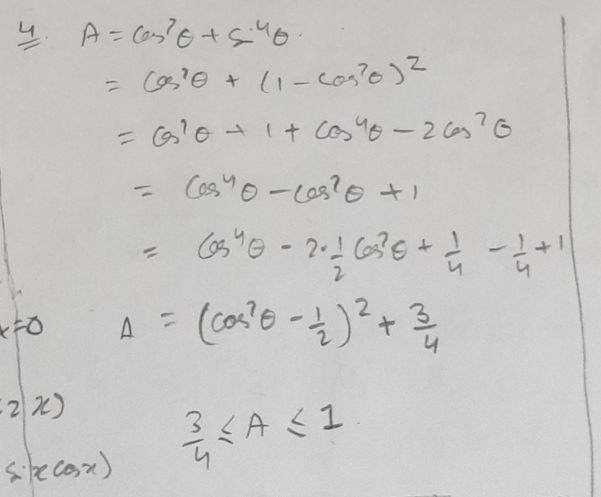 4. A = cos²θ + sin⁴θ.
= cos²θ + (1 - cos²θ)²
= cos²θ + 1 + cos⁴θ - 2cos²θ
= cos⁴θ - cos²θ + 1
= cos⁴θ - 2·1/2 cos²θ + 1/4 - 1/4 + 1
x=0
A = (cos²θ - 1/2)² + 3/4
2x)
3/4 ≤ A ≤ 1.
sinx cosx)